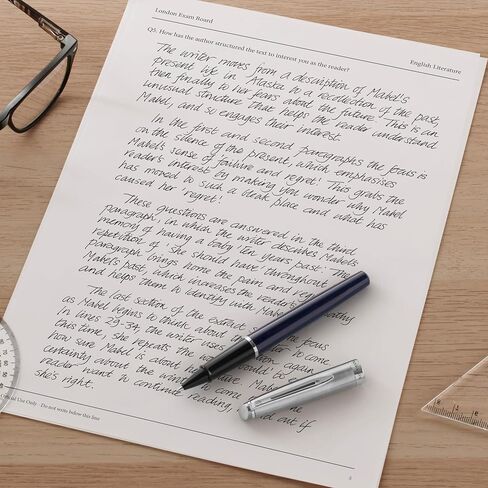 London Exam Board
English Literature
Q5. How has the author structured the text to interest you as the reader?
The writer moves from a description of Mabel's
present life in Alaska to a recollection of the past,
then finally to her fears about the future. This is an
unusual structure that helps the reader understand
Mabel, and so engages their interest.
In the first and second paragraphs the focus is
on the silence of the present, which emphasises
Mabel's sense of 'failure and regret'. This grabs the
reader's interest by making you wonder why Mabel
has moved to such a bleak place and what has
caused her 'regret'.
These questions are answered in the third
paragraph, in which the writer describes Mabel's
memory of having a baby 'ten years past'. The
repetition of 'she should have' throughout
paragraph brings home the pain and
Mabel's past, which increases the reader's
and helps them to identify with Mabel
The last section of the extract the focus
as Mabel begins to think about the to come
In lines 29-34, the writer uses again
this time, she repeats the would to
how sure Mabel is about her Mabel
certainty about the to come
reader want to continue reading, find out if
she's right.
Use Only Do not write below this line